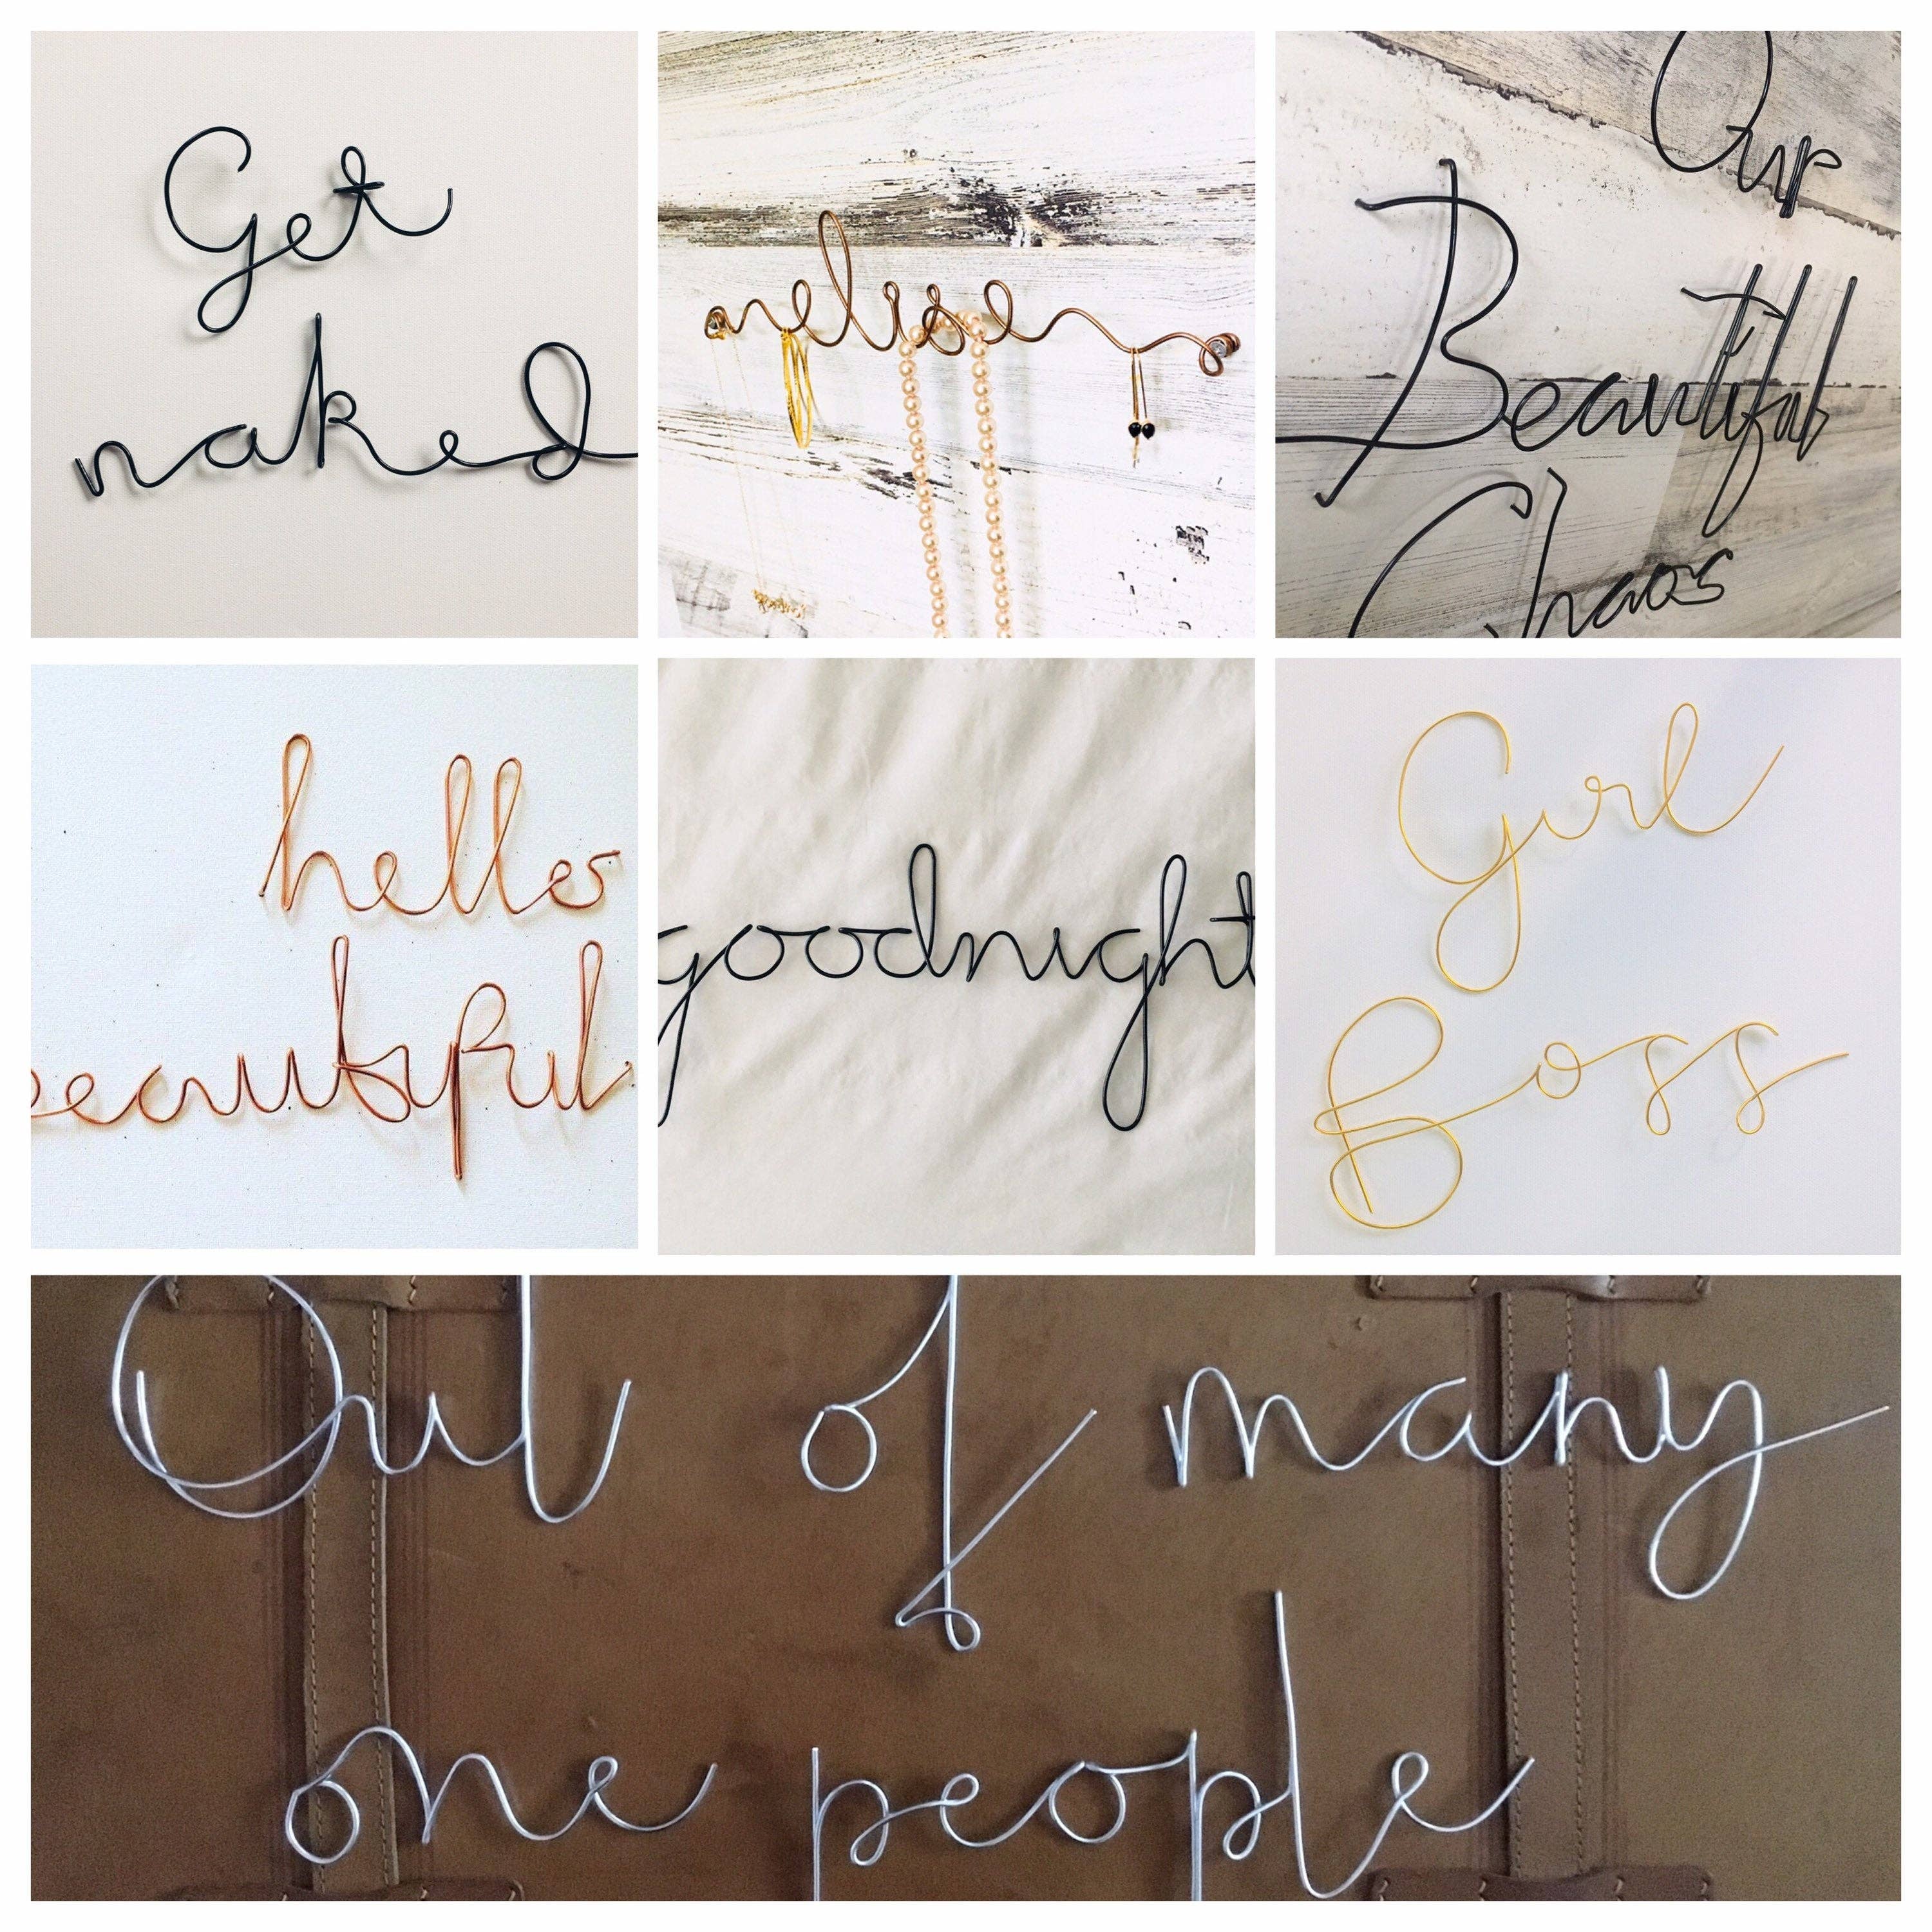 Get
naked
melise
Our
Beautiful
Chaos
hello
beautiful
goodnight
Girl
Boss
Out of many
one people